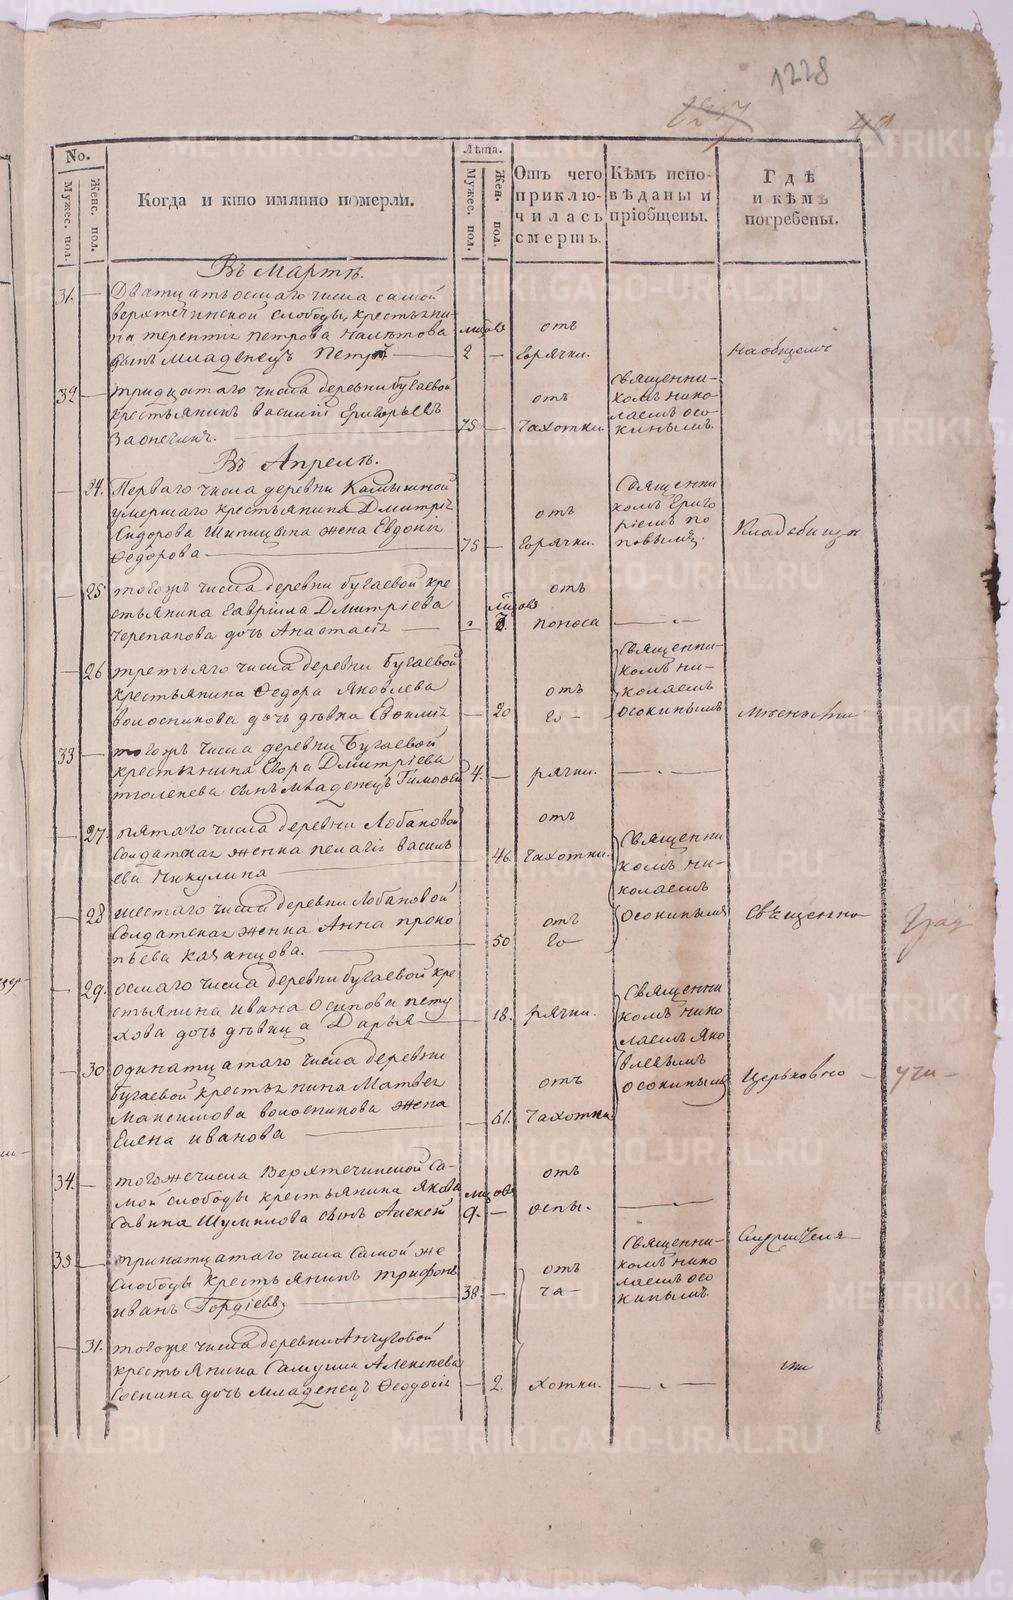 1228
No.
Мужес. пол.
Женс. пол.
Когда и кто имянно померли.
Лѣта.
Мужес. пол.
Жен. пол.
Отъ чего
приклю-
чилась
смерть.
Кѣмъ испо-
вѣданы и
пріобщены.
Гдѣ
и кѣмъ
погребены.
Въ Мартѣ.
31. —
Дватцать осмаго числа самой
верхтечинской слободы, крестьяни-
на терентiя петрова
сынъ младенецъ Петръ —
2 —
отъ
Горячки.
на общемъ
32 —
тридцатаго числа деревни бугаевой
крестьянинъ василiй Григорьевъ
75 —
отъ
Чахотки.
Священни-
комъ нико-
лаемъ осо-
кинымъ.
Въ Апрелѣ.
— 24.
Перваго числа деревни Камышной
умершаго крестьянина Дмитрiя
Сидорова Шипицына жена Евдокия
Федорова —
75 —
отъ
Горячки.
Священни
комъ Григо
рiемъ по
повымъ.
Кладбищѣ
— 25
тогожъ числа деревни бугаевой кре
стьянина Гаврiила Дмитрiева
Черепанова дочь Анастасiя —
отъ
поноса
— „ —
— 26
третьяго числа деревни Бугаевой
крестьянина Федора Яковлева
волосникова дочь дѣвка
— 20
отъ
Го —
Священни-
комъ ни-
колаемъ
осокинымъ
33 —
тогожъ числа деревни Бугаевой
крестьянина Егора Дмитрiева
сынъ младенецъ Тимофей
4. —
рячки.
— „ —
— 27.
пятаго числа деревни Лобановой
Солдатская женка пелагiя василь
ева Никулина —
— 46.
отъ
Чахотки.
Священни
комъ Ни-
колаемъ
осокинымъ
— 28
шестаго числа деревни Лобановой
Солдатская женка Анна проко
пьева казанцова. —
— 50
отъ
Го —
Священно
— 29.
осмаго числа деревни бугаевой кре
стьянина ивана осипова пету
хова дочь дѣвица Дарья —
— 18.
рячки.
Священни
комъ нико
лаемъ Яко
влевымъ
осокинымъ
— 30
одинатцатаго числа деревни
Бугаевой крестьянина Матвея
Максимова волосникова жена
Елена иванова —
— 61.
отъ
Чахотки.
Церковно —
учи —
34. —
тогожечисла Верхтечинской Са-
мой слободы крестьянина Якова
Савина Шумилова сынъ Алексей
9. —
отъ
оспы.
— „ —
35 —
тринатцатаго числа Самой же
Слободы Крестьянинъ трифонъ
ивановъ Гордiевъ, —
38. —
отъ
ча —
Священни-
комъ нико
лаемъ осо
кинымъ.
— 31.
тогоже числа деревни Анчуговой
крестьянина Самуила Алексеева
Соснина дочь младенецъ Феодосiя
— 2.
хотки.
— „ —
METRIKI.GASO-URAL.RU